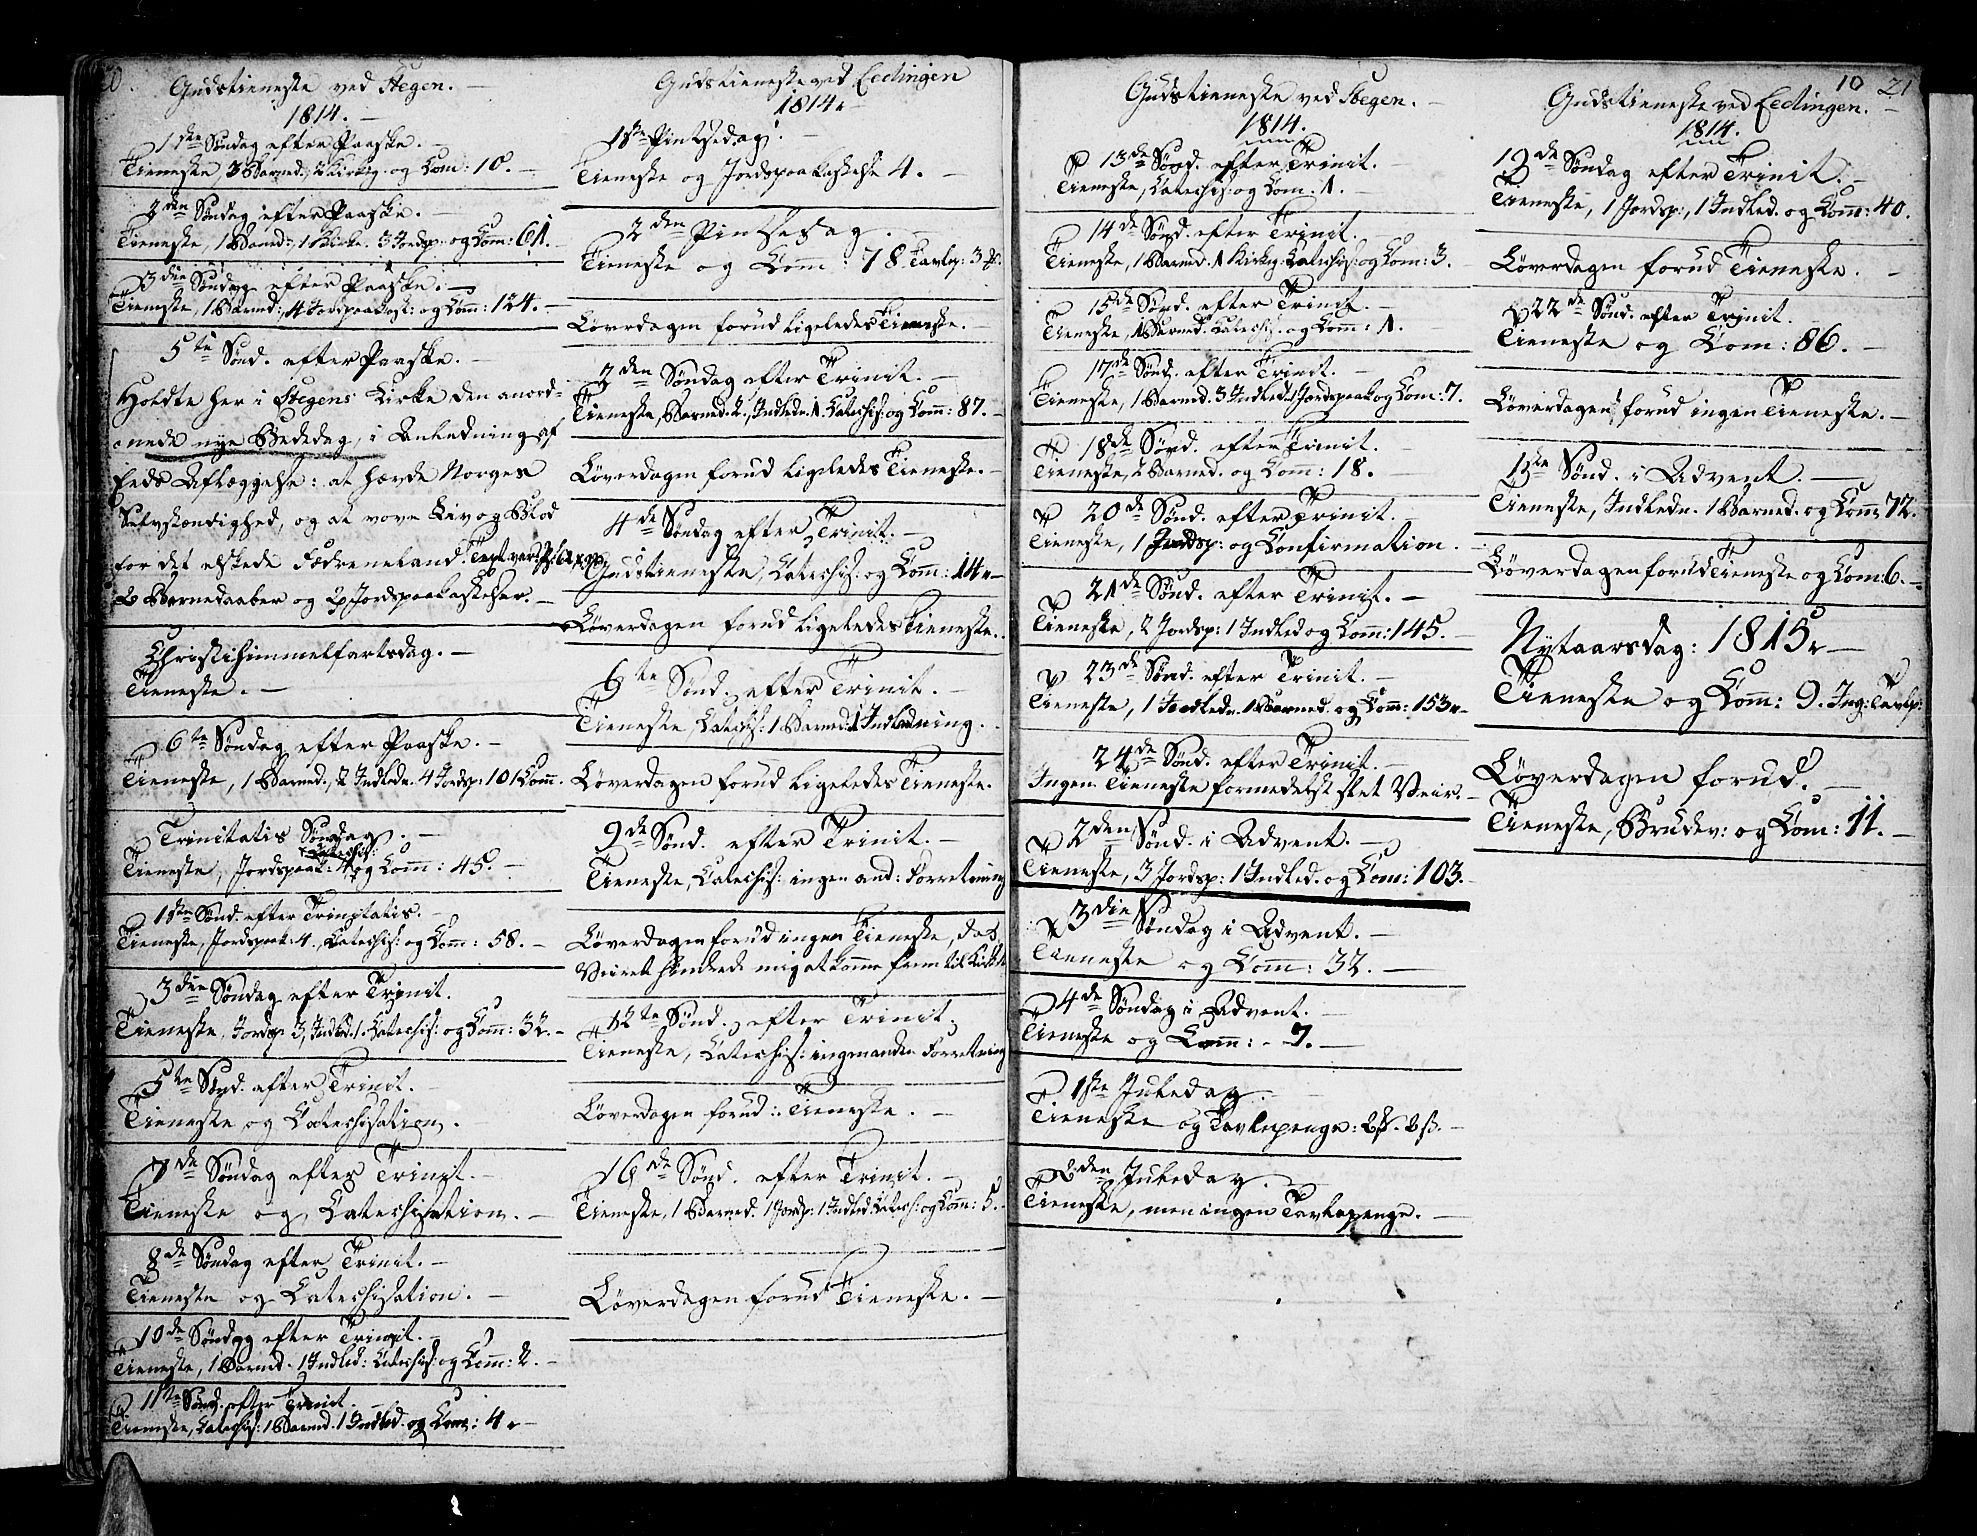 20.
Gudstieneste ved Stegen. -
1814. -
1ste Søndag efter Paaske. -
Tieneste, 3 Barned., 2 Kirkeg. og Com: 10. -
2den Søndag efter Paaske. -
Tieneste, 1 Barned:, 1 Kirke. 5 Jordsp. og Com: 61. -
3die Søndag efter Paaske. -
Tieneste, 1 Barned:, 4 Jordpaakast: og Comm: 124. -
5te Sønd. efter Paaske. -
Holdte her i Stegens Kirke den anord-
nede nye Bededag, i Anledning af
Eeds Aflæggelse: at hævde Norges
Selvstændighed, og at vove Liv og Blod
for det elskede Fødreneland. Text var
2 Barnedaaber og 2 Jordspaakastelser. -
Christihimmelfartsdag. -
Tieneste. -
6te Søndag efter Paaske. -
Tieneste, 1 Barned., 2 Indledn. 4 Jordsp: 101 Comm.
Trinitatis Søndag. -
Catechis:
Tieneste, Jordspaak: 4 og Comm: 45. -
1ste Sønd. efter Trinitatis. -
Tieneste, Jordspaak: 4., Catechis: og Comm: 58. -
3die Søndag efter Trinit.
Tieneste, Jordsp: 3, Indled. 1. Catechis: og Comm: 32. -
5te Sønd. efter Trinit. -
Tieneste og Catechisation. -
7de Søndag efter Trinit. -
Tieneste og Catechisation. -
8de Søndag efter Trinit. -
Tieneste og Catechisation. -
10de Søndag efter Trinit. -
Tieneste, 1 Barned. 1 Indled: Catechis: og Comm: 2. -
11te Sønd. efter Trinit. -
Tieneste, Catechis: 1 Barned. 1 Indled. og Com: 4. -
Gudstieneste ved Leedingen
1814. -
1ste Pintsedag. -
Tieneste og Jordspaakastelse 4. -
2den Pintsedag. -
Tieneste og Comm: 78 Tavlep: 3
Løverdagen forud ligeledes Tieneste. -
2den Søndag efter Trinit. -
Tieneste, Barned. 2., Indledn. 1. Catechis: og Comm: 87. -
Løverdagen forud ligeledes Tieneste. -
4de Søndag efter Trinit. -
Gudstieneste, Catechis: og Comm: 14. -
Løverdagen forud ligeledes Tieneste. -
6te Sønd. efter Trinit. -
Tieneste, Catechis: 1 Barned: 1 Indledning. -
Løverdagen forud ligeledes Tieneste.
9de Sønd. efter Trinit. -
Tieneste, Catechis: ingen and: Forretning
Løverdagen forud ingen Tieneste, da
Veiret hindrede mig at komme frem til Kirken
12te Sønd. efter Trinit.
Tieneste, Catechis: ingen anden Forretning
Løverdagen forud: Tieneste. -
16de Sønd. efter Trinit. -
Tieneste, 1 Barned. 1 Jordsp: 1 Indled: Catech: og Comm: 5. -
Løverdagen forud Tieneste. -
Gudstieneste ved Stegen. -
1814.
13de Sønd. efter Trinit. -
Tieneste, Catechis: og Com. 1. -
14de Sønd. efter Trinit. -
Tieneste, 1 Barned. 1 Kirkeg: Catechis: og Com: 3.
15de Sønd. efter Trinit. -
Tieneste, 1 Barned. Catechis. og Comm: 1.
17de Sønd. efter Trinit. -
Tieneste, 1 Barned. 3 Indled. 1 Jordspaak og Com: 7.
18de Sønd. efter Trinit. -
Tieneste, 2 Barned. og Comm: 18.
20de Sønd. efter Trinit. -
Tieneste, 1 Jordsp: og Confirmation. -
21de Sønd. efter Trinit. -
Tieneste, 2 Jordsp: 1 Indled og Comm: 145. -
23de Sønd. efter Trinit. -
Tieneste, 1 Indledn. 1 Barned. og Comm: 153. -
24de Sønd. efter Trinit. -
Ingen Tieneste formedelst slet Veir. -
2den Sønd. i Advent. -
Tieneste, 3 Jordsp: 1 Indled. og Com: 103. -
3die Søndag i Advent. -
Tieneste og Comm: 32. -
4de Søndag i Advent. -
Tieneste og Comm: - 7. -
1ste Juledag. -
Tieneste og Tavlepenge: 2 2 ß. -
2den Juledag. -
Tieneste, men ingen Tavlepenge. -
10 21
Gudstieneste ved Leedingen. -
1814.
19de Søndag efter Trinit. -
Tieneste, 1 Jordsp:, 1 Indled. og Comm: 40.
Løverdagen forud Tieneste. -
22de Sønd. efter Trinit. -
Tieneste og Com: 86. -
Løverdagen forud ingen Tieneste. -
1ste Sønd. i Advent. -
Tieneste, Indledn. 1 Barned. og Comm 72.
Løverdagen forud Tieneste og Com: 6. -
Nytaarsdag: 1815. -
Tieneste og Comm: 9. Ing: Tavlep:
Løverdagen forud. -
Tieneste, Brudev: og Com: 11. -